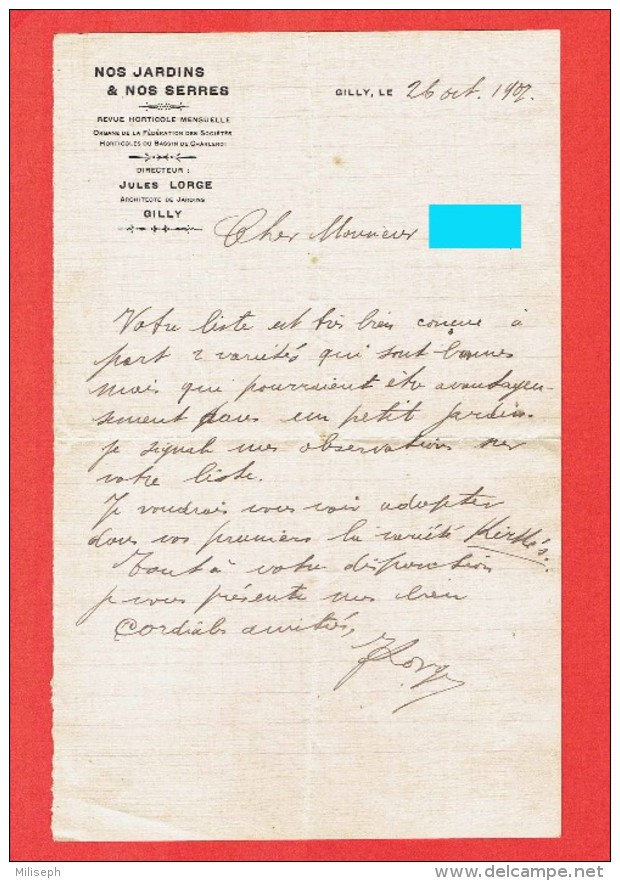 NOS JARDINS
& NOS SERRES
REVUE HORTICOLE MENSUELLE
ORGANE DE LA FÉDÉRATION DES SOCIÉTÉS
HORTICOLES DU BASSIN DE CHARLEROI
DIRECTEUR :
JULES LORGE
ARCHITECTE DE JARDINS
GILLY
GILLY, LE 26 oct. 1907.
Cher Monsieur
Votre liste est très bien conçue à
part 2 variétés qui sont bonnes
mais qui pourraient être avantageu-
sement dans un petit jardin.
je signale mes observations sur
votre liste.
Je voudrais vous voir adopter
dans vos pruniers la variété Kirke's.
Tout à votre disposition
je vous présente mes bien
cordiales amitiés,
JLorge
Miliseph
delcampe.net